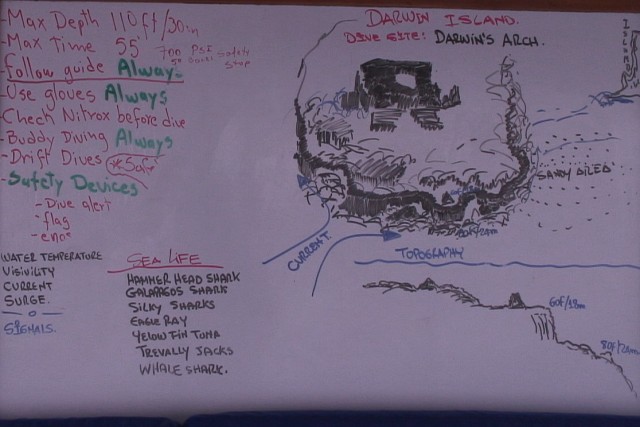 -Max Depth 110ft/30m
-Max Time 55'
700 PSI
50 Safety
Stop
follow guide Always
-Use gloves Always
Check Nitrox before dive
-Buddy Diving Always
-Drift Dives
-Safety Devices
-Dive alert
-flag
WATER TEMPERATURE
VISIVILITY
CURRENT
SURGE.
SIGNALS.
SEA LIFE
HAMMER HEAD SHARK
GALAPAGOS SHARK
SILKY SHARKS
EAGLE RAY
YELOW FIN TUNA
TREVALLY JACKS
WHALE SHARK.
DARWIN ISLAND.
DIVE SITE: DARWIN'S ARCH.
SANDY
CURRENT
TOPOGRAPHY
60F/18m
80F/24m